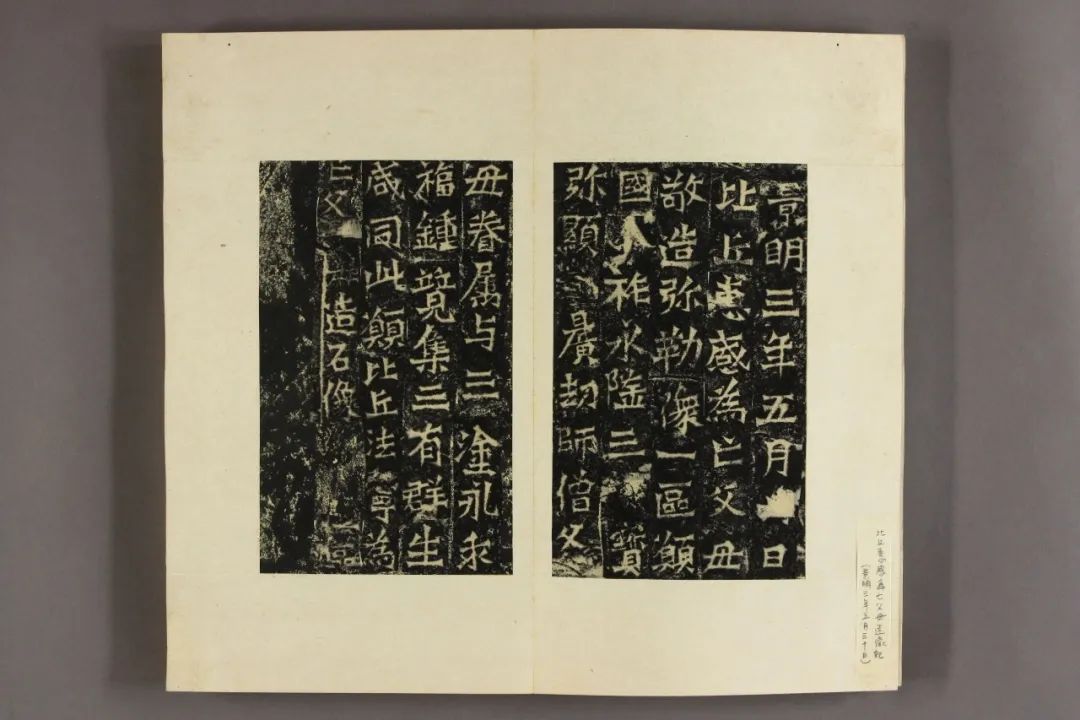 景明三年五月日
比丘惠感為亡父母
敬造弥勒像一區願
國祚永隆三寶
弥顯曠劫師僧父
母眷属与三塗永乖
福鍾竟集三有群生
咸同此願比丘法寧為
亡父造石像區
比丘惠感為亡父母造像記
(景明三年五月三十日)